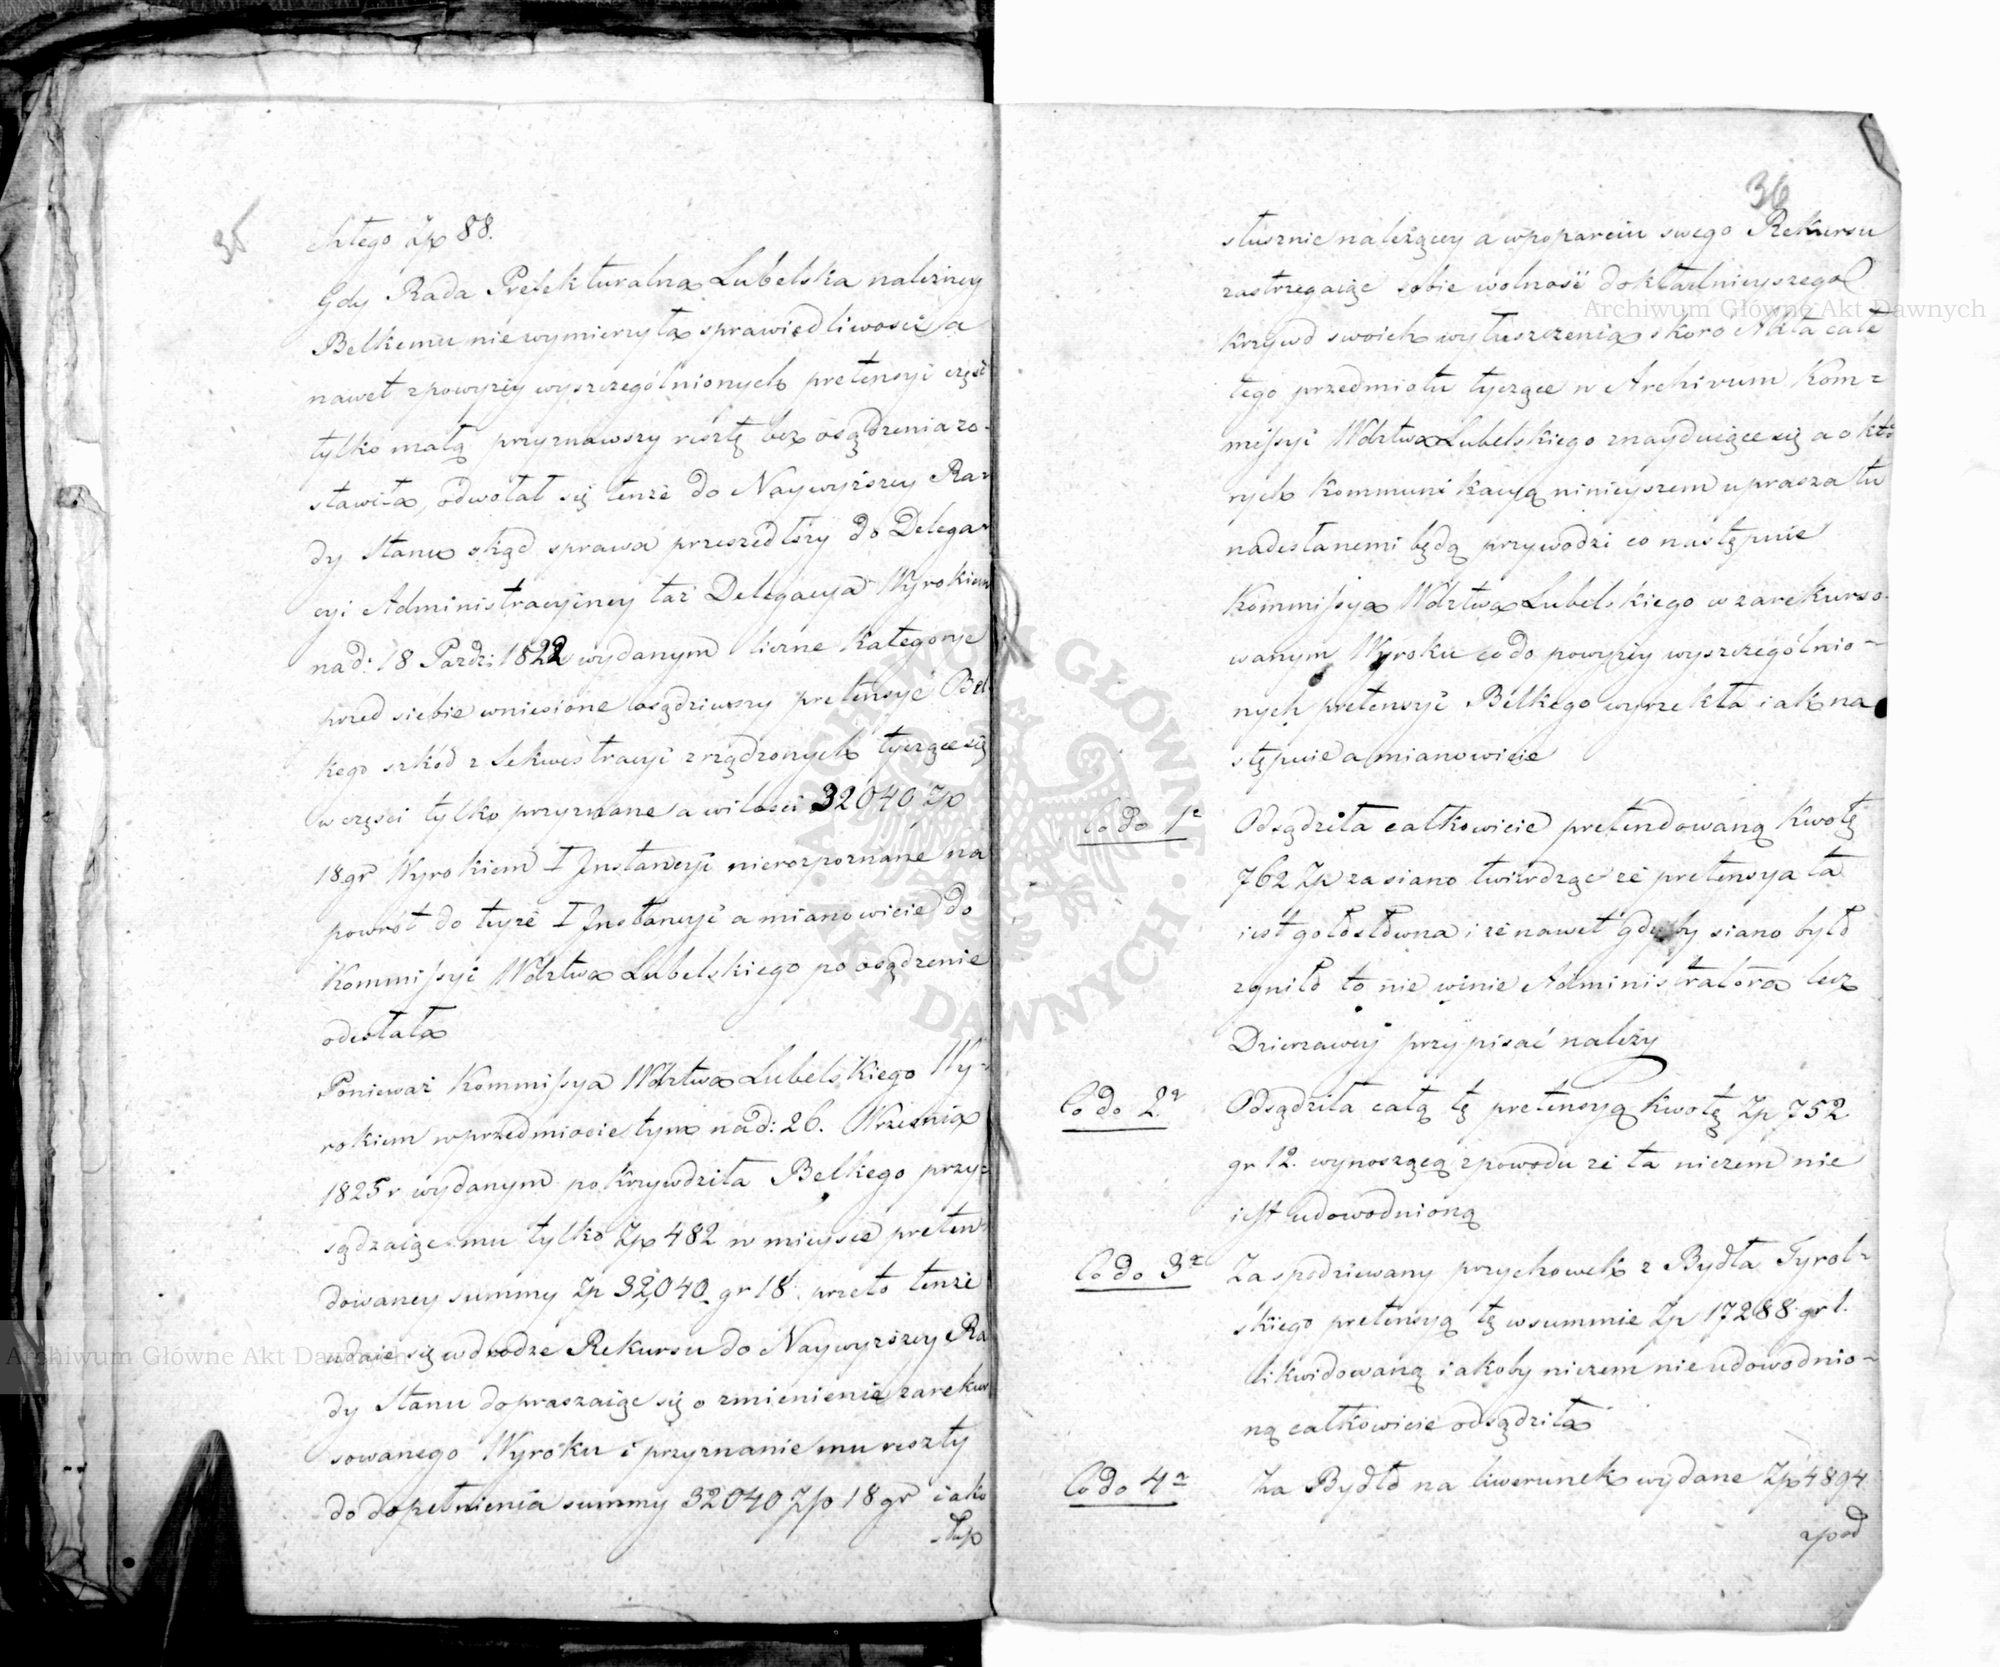 35
chtego Zp 88.
Gdy Rada Prefekturalna Lubelska należney
Belkemu nie wymierzyła sprawiedliwości a
nawet z powyżey wyszczególnionych pretensyi część
tylko małą przyznawszy resztę bez osądzenia zo-
stawiła, odwołał się tenże do Naywyższey Ra-
dy Stanu skąd sprawa przeszedłszy do Delega-
cyi Administracyiney taż Delegacya Wyrokiem
na d: 18 Pazdz: 1822 wydanym liczne kategorye
przed siebie wniesione osądziwszy pretensye Bel-
kego szkód z Sekwestracyi zrządzonych tyczące się
w części tylko przyznane a w ilości 32040 Zp
18 gr Wyrokiem I Instancyi nierozpoznane na
powrót do teyże I Instancyi a mianowicie do
Kommissyi Wdztwa Lubelskiego po osądzenie
odesłała
Ponieważ Kommissya Wdztwa Lubelskiego Wy-
rokiem w przedmiocie tym na d: 26. Września
1825 r wydanym pokrzywdziła Belkego przy-
sądzaiąc mu tylko Zp 482 w mieysce preten-
dowaney summy Zp 32,040 gr 18. przeto tenże
udaie się w drodze Rekursu do Naywyższey Ra
dy Stanu dopraszaiąc się o zmienienie zarekur
sowanego Wyroku i przyznanie mu reszty
do dopełnienia summy 32040 Zp 18 gr iako
słu
36
słusznie należącey a w poparciu swego Rekursu
zastrzegaiąc sobie wolność dokładnieyszego
krzywd swoich wyłuszczenia skoro Akta całe
tego przedmiotu tyczące w Archivum Kom=
missyi Wdztwa Lubelskiego znayduiące się a o któ
rych kommunikacyą ninieyszem uprasza tu
nadesłanemi będą przywodzi co następuie
Kommissya Wdztwa Lubelskiego w zarekurso-
wanym Wyroku co do powyżey wyszczególnio-
nych pretensyi Belkego wyrzekła iak na
stępuie a mianowicie
Co do 1º
Odsądziła całkowicie pretendowaną kwotę
762 Zp za siano twierdząc że pretensya ta
iest gołosłowna i że nawet gdyby siano było
zgniło to nie winie Administratora lecz
Dzierzawcy przypisać należy
Co do 2º
Odsądziła całą tę pretensyą kwotę Zp 752
gr 12. wynoszącą z powodu że ta niczem nie
iest udowodnioną
Co do 3º
Za spodziewany przychowek z Bydła Tyrol-
skiego pretensyą tę w summie Zp 17288 gr 1.
likwidowaną iakoby niczem nie udowodnio-
ną całkowicie odsądziła
Co do 4º
Za Bydło na liwerunek wydane Zp 4894
zpod
Archiwum Główne Akt Dawnych
Archiwum Główne Akt Dawnych
ARCHIWUM GŁÓWNE AKT DAWNYCH